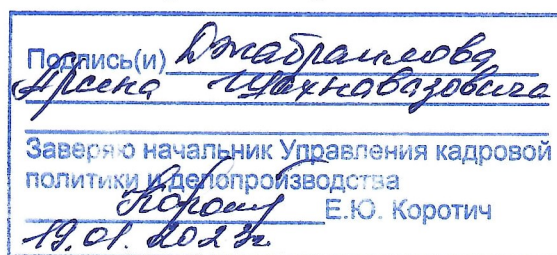 Подпись(и) Джабраилова
Арсена Шахновазовича
Заверяю начальник Управления кадровой
политики и делопроизводства
Е.Ю. Коротич
19.01.2023г.